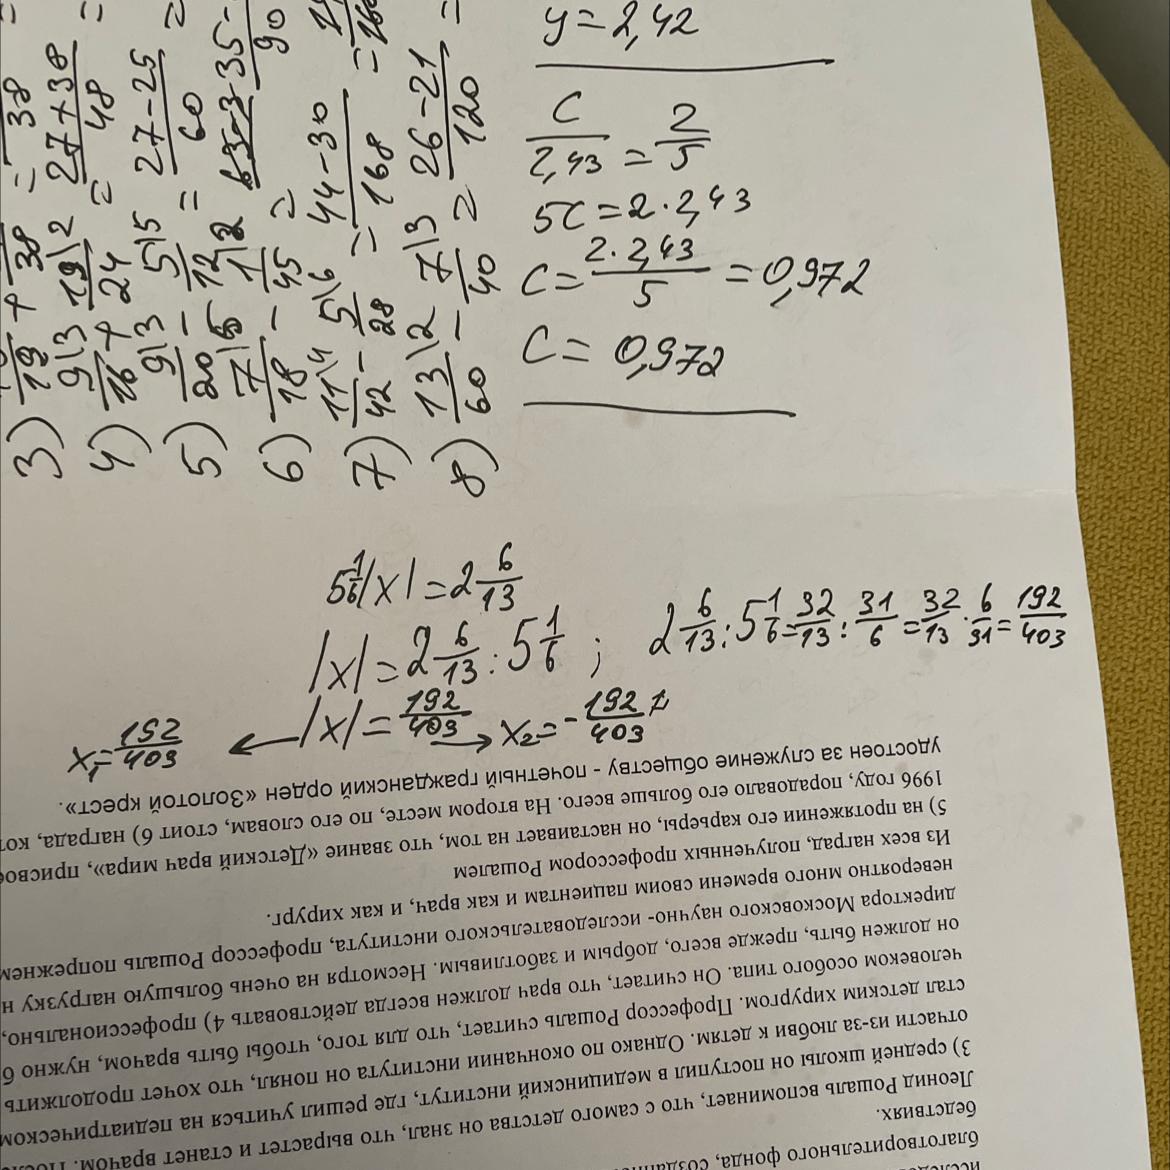 y = 2,42
C/2,43 = 2/5
5C = 2 · 2,43
C = 2 · 2,43/5 = 0,972
C = 0,972
3) 19 + 38 = 38 =
4) 9\3/16 + 19\2/24 = 27 + 38/48 =
5) 9\3/20 - 5\5/12 = 27 - 25/60 =
6) 7\5/18 - 1\2/45 = 35 -/90
7) 11\4/42 - 5\6/28 = 44 - 30/168 =
8) 13\2/60 - 7\3/40 = 26 - 21/120 =
5 1/6 |x| = 2 6/13
|x| = 2 6/13 : 5 1/6 ; 2 6/13 : 5 1/6 = 32/13 : 31/6 = 32/13 · 6/31 = 192/403
x₁ = 192/403 ← |x| = 192/403 → x₂ = - 192/403
благотворительного фонда,
бедствиях.
Леонид Рошаль вспоминает, что с самого детства он знал, что вырастет и станет врачом.
3) средней школы он поступил в медицинский институт, где решил учиться на педиатрическом
отчасти из-за любви к детям. Однако по окончании института он понял, что хочет продолжить
стал детским хирургом. Профессор Рошаль считает, что для того, чтобы быть врачом, нужно б
человеком особого типа. Он считает, что врач должен всегда действовать 4) профессионально,
он должен быть, прежде всего, добрым и заботливым. Несмотря на очень большую нагрузку н
директора Московского научно- исследовательского института, профессор Рошаль попрежнем
невероятно много времени своим пациентам и как врач, и как хирург.
Из всех наград, полученных профессором Рошалем
5) на протяжении его карьеры, он настаивает на том, что звание «Детский врач мира», присвое
1996 году, порадовало его больше всего. На втором месте, по его словам, стоит 6) награда, кот
удостоен за служение обществу - почетный гражданский орден «Золотой крест».